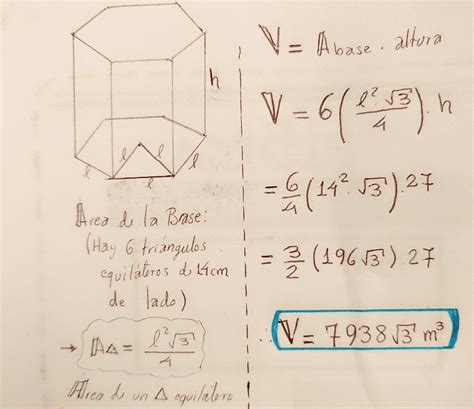 h
l
l
l
l
l
Area de la Base:
(Hay 6 triángulos
equiláteros de 14cm
de lado)
→ A△ = l²√3 / 4
Area de un △ equilatero
V = Abase · altura
V = 6 (l²·√3 / 4) · h
= 6/4 (14²·√3) · 27
= 3/2 (196√3) · 27
V = 7938√3 m³